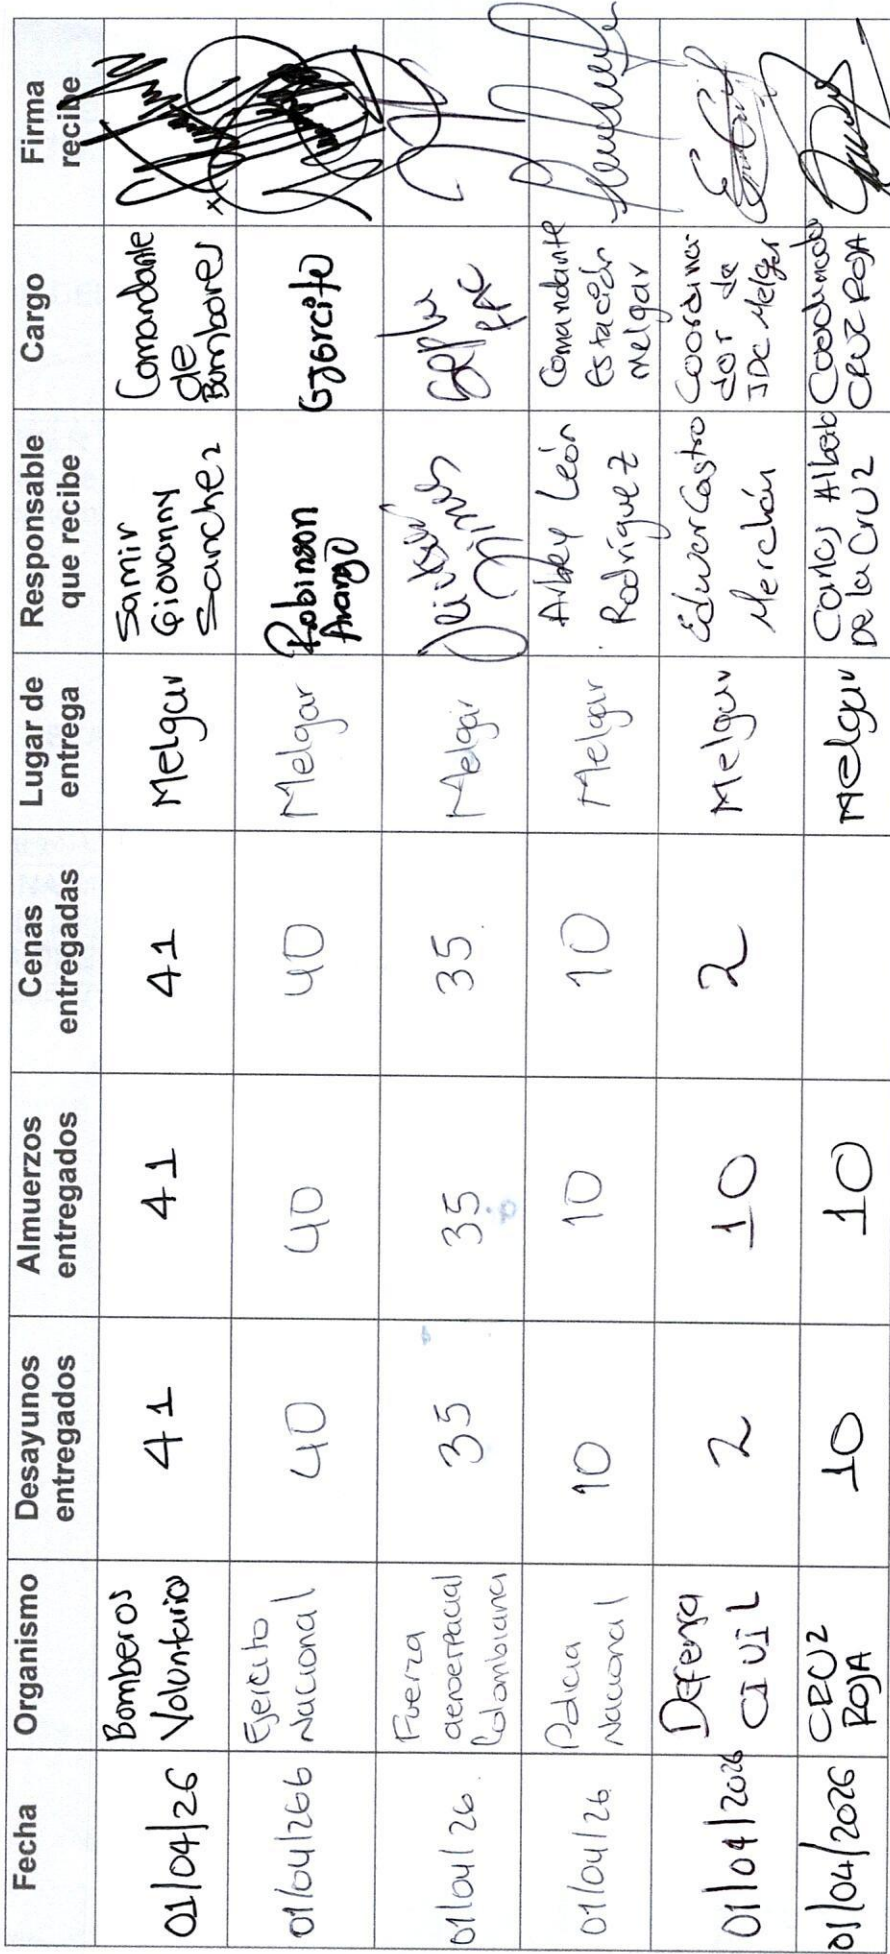 Fecha
Organismo
Desayunos
entregados
Almuerzos
entregados
Cenas
entregadas
Lugar de
entrega
Responsable
que recibe
Cargo
Firma
recibe
01/04/26
Bomberos
Voluntarios
41
41
41
Melgar
Samir
Giovanny
Sanchez
Comandante
de
Bomberos
01/04/266
Ejercito
Nacional
40
40
40
Melgar
Robinson
Arango
Ejercito
01/04/26.
Fuerza
aeroespacial
Colombiana
35
35
35.
Melgar
01/04/26
Policia
Nacional
10
10
10
Melgar
Arbey León
Rodríguez
Comandante
Estación
Melgar
01/04/2026
Defensa
CIVIL
2
10
2
Melgar
Edwar Castro
Merchán
Coordina-
dor de
JDC Melgar
01/04/2026
CRUZ
ROJA
10
10
Melgar
Carlos Alberto
De la Cruz
Coordinador
CRUZ ROJA